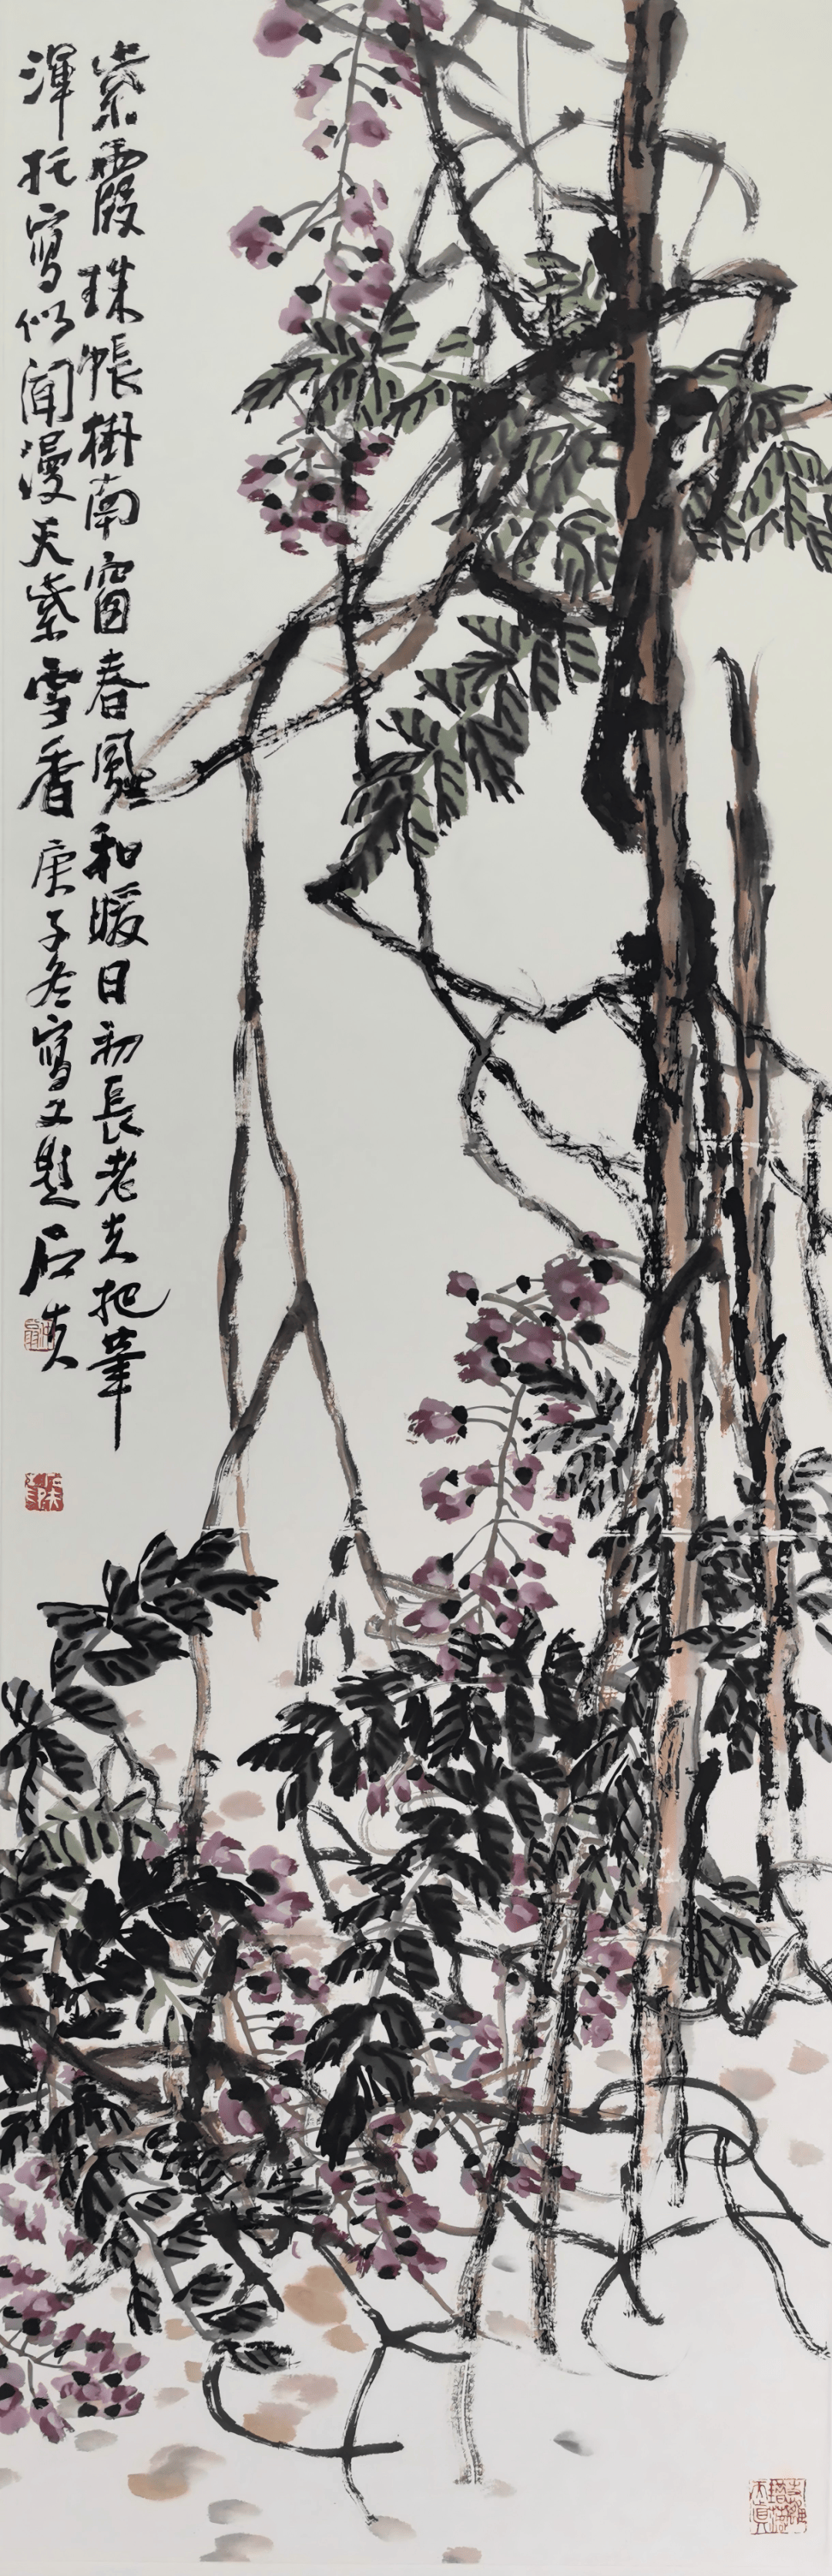 紫霞珠帐掛南窗春風和暖日初長老夫把筆
渾托寫似闻漫天紫雪香庚子冬寫又題石夫